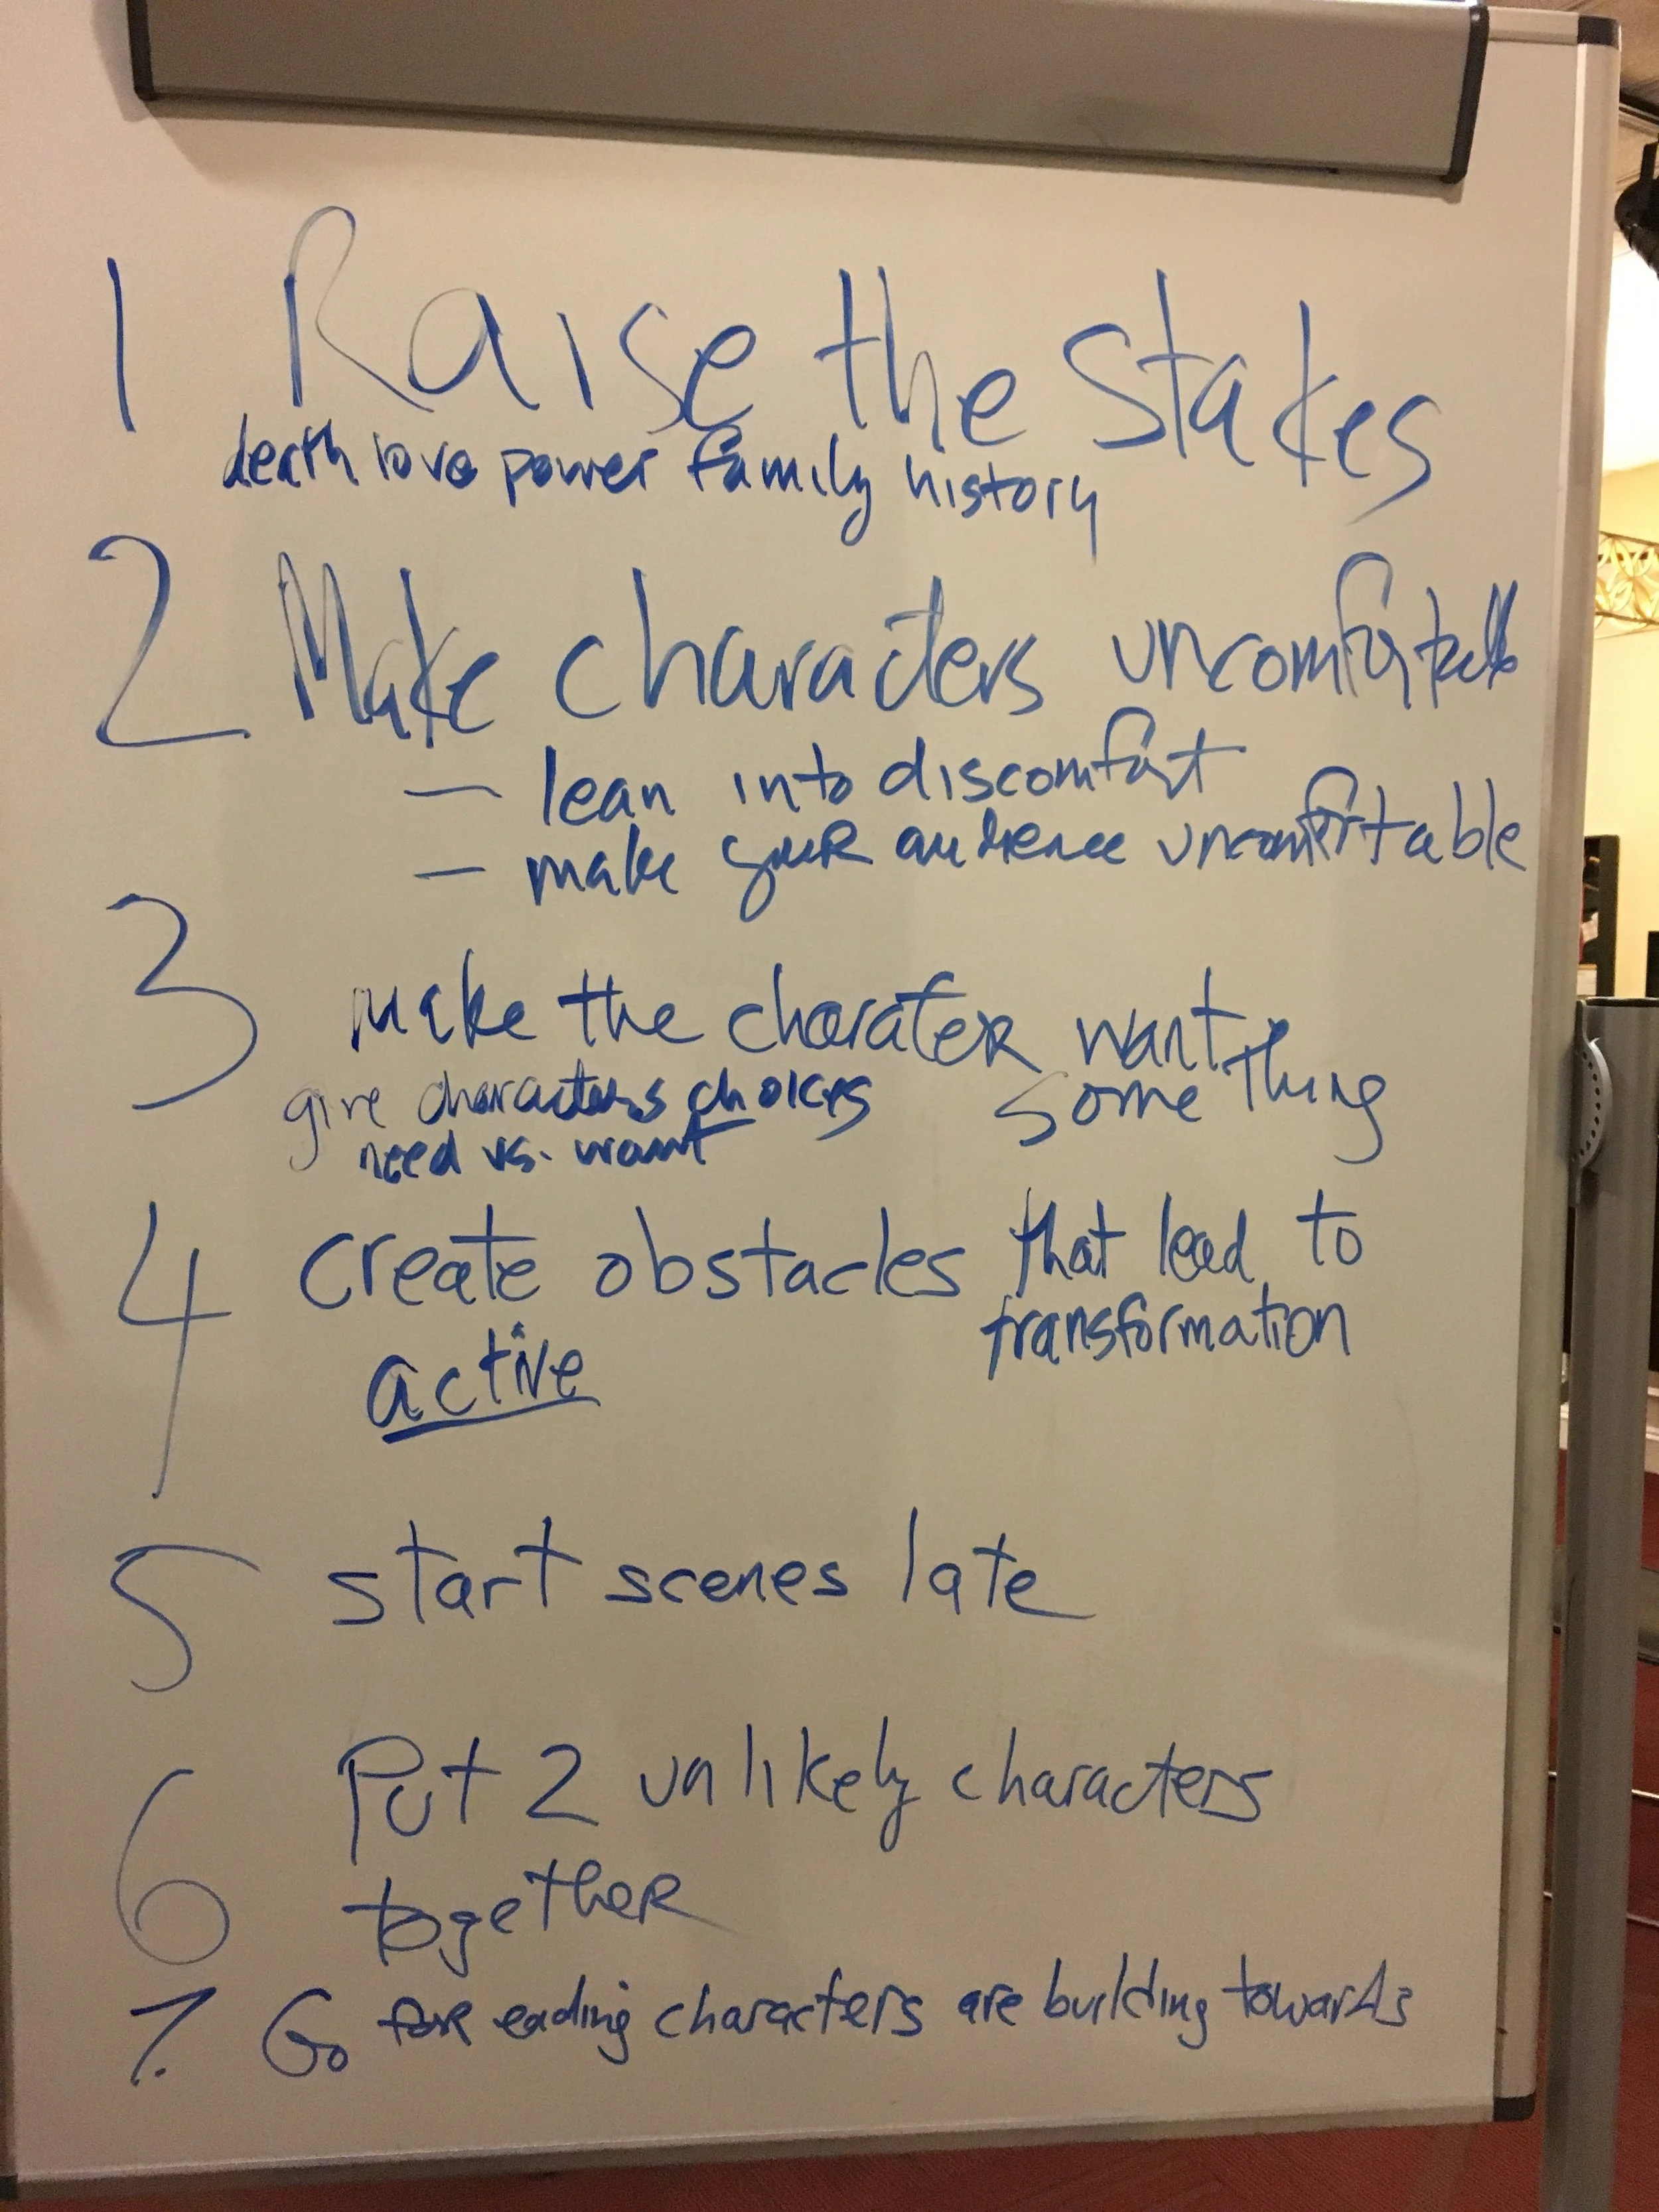 1 Raise the Stakes
death love power family history
2 Make characters uncomfortable
— lean into discomfort
— make your audience uncomfortable
3 make the charater want
something
give characters choices
need vs. want
4 create obstacles that lead to
transformation
active
5 start scenes late
6 Put 2 unlikely characters
together
7. Go for ending characters are building towards